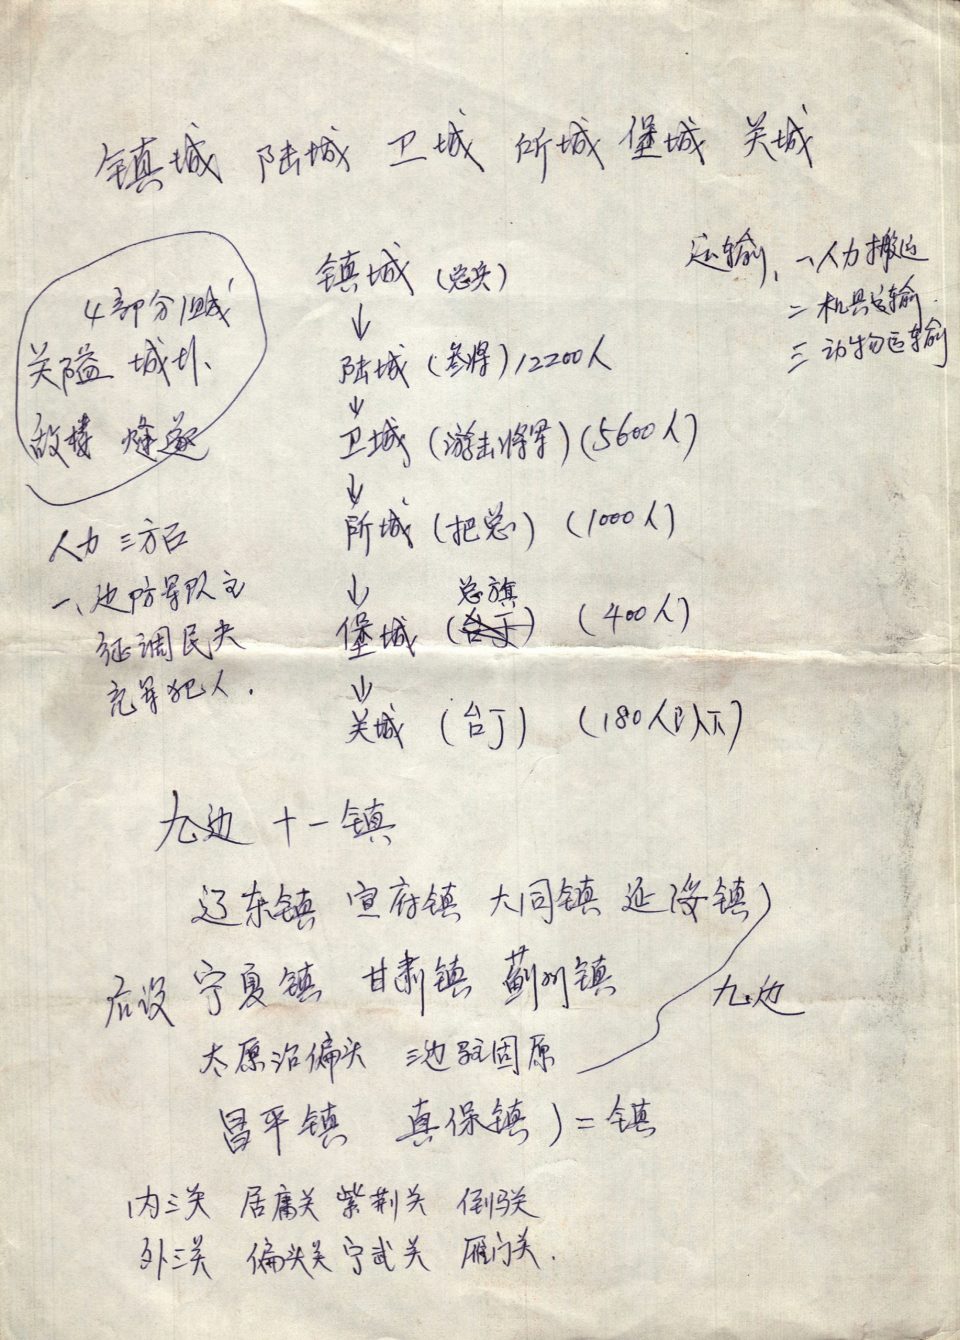 镇城 陆城 卫城 所城 堡城 关城
4部分组成
关隘 城圤、
敌楼 烽燧
镇城 (总兵)
↓
陆城 (参将) 12200人
↓
卫城 (游击将军) (5600人)
↓
所城 (把总) (1000人)
↓
总旗
堡城 (台丁) (400人)
↓
关城 (台丁) (180人以下)
运输、一人力搬运
二机具运输
三动物运输
人力 三方面
一、边防军队主
征调民夫
充军犯人.
九边 十一镇
辽东镇 宣府镇 大同镇 延绥镇)
后设 宁夏镇 甘肃镇 蓟州镇
九边
太原治偏头 三边驻固原
昌平镇 真保镇)=镇
内三关 居庸关 紫荆关 倒马关
外三关 偏头关 宁武关 雁门关.